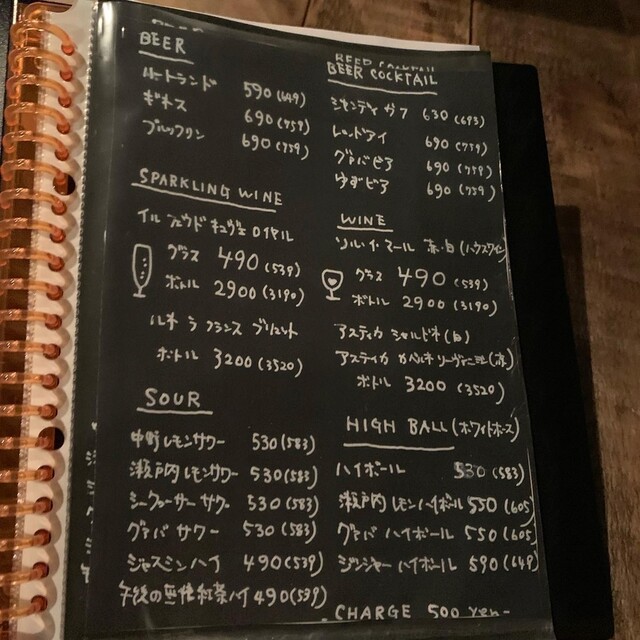 BEER
ハートランド 590(649)
ギネス 690(759)
ブルックリン 690(759)
SPARKLING WINE
グラス 490(539)
ボトル 2900(3190)
ルネ ラ フランス ブリュット
ボトル 3200(3520)
SOUR
中野レモンサワー 530(583)
瀬戸内レモンサワー 530(583)
シークワーサーサワー 530(583)
グァバサワー 530(583)
ジャスミンハイ 490(539)
午後の無糖紅茶ハイ 490(539)
BEER COCKTAIL
シャンディガフ 630(693)
レッドアイ 690(759)
グァバビア 690(759)
ゆずビア 690(759)
WINE
ソル・イ・マール 赤・白(ハウスワイン)
グラス 490(539)
ボトル 2900(3190)
アスティカ シャルドネ(白)
アスティカ カベルネソーヴィニヨン(赤)
ボトル 3200(3520)
HIGH BALL(ホワイトホース)
ハイボール 530(583)
瀬戸内レモンハイボール 550(605)
グァバハイボール 550(605)
ジンジャーハイボール 590(649)
-CHARGE 500 yen-